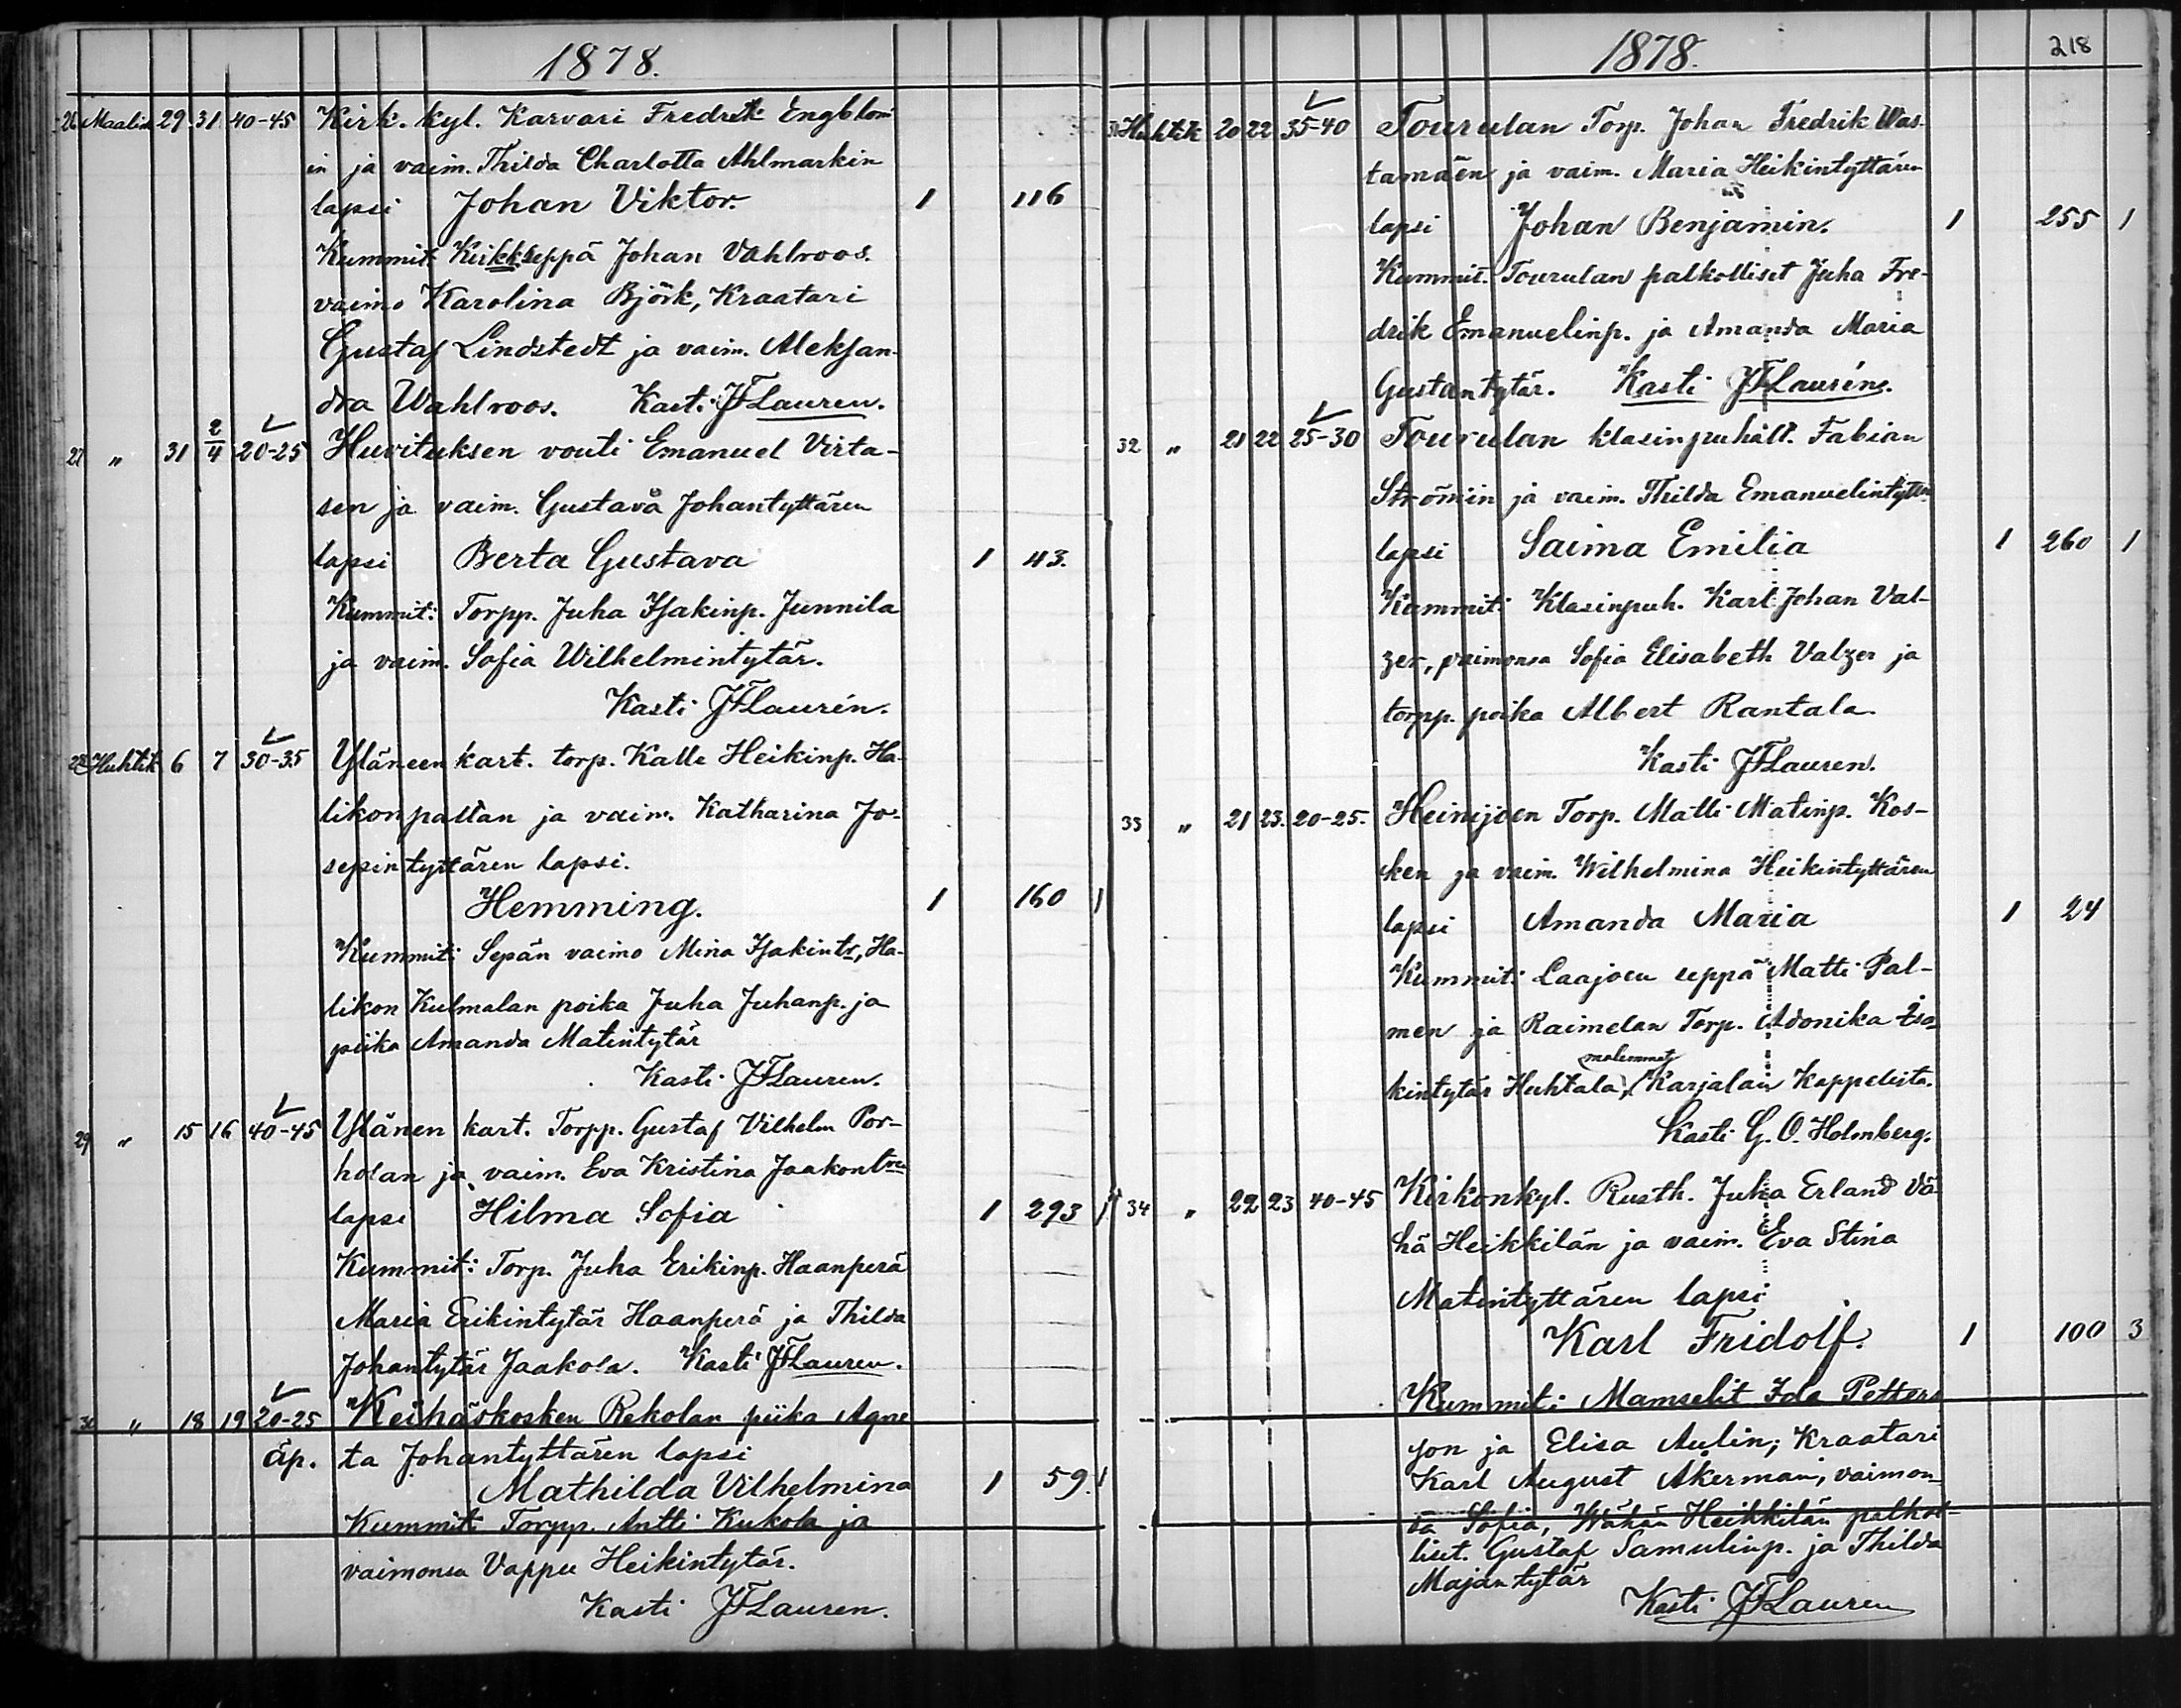 1878.
26 Maalisk 29 31 40-45 Kirk. kyl. Karvari Fredrik Engblom
in ja vaim. Thilda Charlotta Ahlmarkin
lapsi Johan Viktor. 1 116
Kummit: Kirkkseppä Johan Vahlroos.
vaimo Karolina Björk, Kraatari
Gustaf Lindstedt ja vaim. Aleksan-
dra Wahlroos. Kast. JFLauren.
27 " 31 2/4 20-25 Huvituksen vouti Emanuel Virta-
sen ja vaim. Gustava Johantyttären
lapsi Berta Gustava 1 43.
Kummit: Torpp. Juha Isakinp. Junnila
ja vaim. Sofia Wilhelmintytär.
Kasti JFLaurén.
28 Huhtik 6 7 30-35 Yläneen kart. torp. Kalle Heikinp. Ha-
likonpallan ja vaim. Katharina Jo-
sepintyttären lapsi.
Hemming. 1 160 1
Kummit: Sepän vaimo Mina Isakintr, Ha-
likon Kulmalan poika Juha Juhanp. ja
piika Amanda Matintytär
Kasti JFLauren.
29 " 15 16 40-45 Ylänen kart. Torpp. Gustaf Vilhelm Por-
holan ja vaim. Eva Kristina Jaakontren
lapsi Hilma Sofia 1 293 1
Kummit: Torp. Juha Erikinp. Haanperä
Maria Erikintytär Haanperä ja Thilda
Johantytär Jaakola. Kasti JFLauren.
30 " 18 19 20-25 Keihäskosken Rekolan piika Agne
äp. ta Johantyttären lapsi
Mathilda Vilhelmina 1 59. 1
Kummit Torpp. Antti Kukola ja
vaimonsa Vappu Heikintytär.
Kasti JFLauren.
1878. 218
31 Huhtik 20 22 35-40 Tourulan Torp. Johan Fredrik Was-
tamäen ja vaim. Maria Heikintyttären
lapsi Johan Benjamin. 1 255 1
Kummit. Tourulan palkolliset Juha Fre-
drik Emanuelinp. ja Amanda Maria
Gustantytär. Kasti JFLaurén.
32 " 21 22 25-30 Tourulan klasinpuhalt. Fabian
Strömin ja vaim. Thilda Emanuelintytten
lapsi Saima Emilia 1 260 1
Kummit: Klasinpuh. Karl Johan Val-
zer, vaimonsa Sofia Elisabeth Valzer ja
torpp. poika Albert Rantala.
Kasti JFLauren.
33 " 21 23. 20-25. Heinijoen Torp. Matti Matinp. Kos-
ken ja vaim. Wilhelmina Heikintyttären
lapsi Amanda Maria 1 24
Kummit: Laajoen seppä Matti Pal-
men ja Raimelan Torp. Adonika Isa-
molemmat
kintytär Huhtala, Karjalan Kappelista.
Kasti G. O. Holmberg.
34 " 22 23 40-45 Kirkonkyl. Rusth. Juha Erland Vä-
hä Heikkilän ja vaim. Eva Stina
Matintyttären lapsi
Karl Fridolf. 1 100 3
Kummit: Mamselit Ida Petters
son ja Elisa Aulin; Kraatari
Karl August Åkerman, vaimon-
sa Sofia, Wähän Heikkilän palkol-
liset. Gustaf Samulinp. ja Thilda
Majantytär
Kasti JFLauren